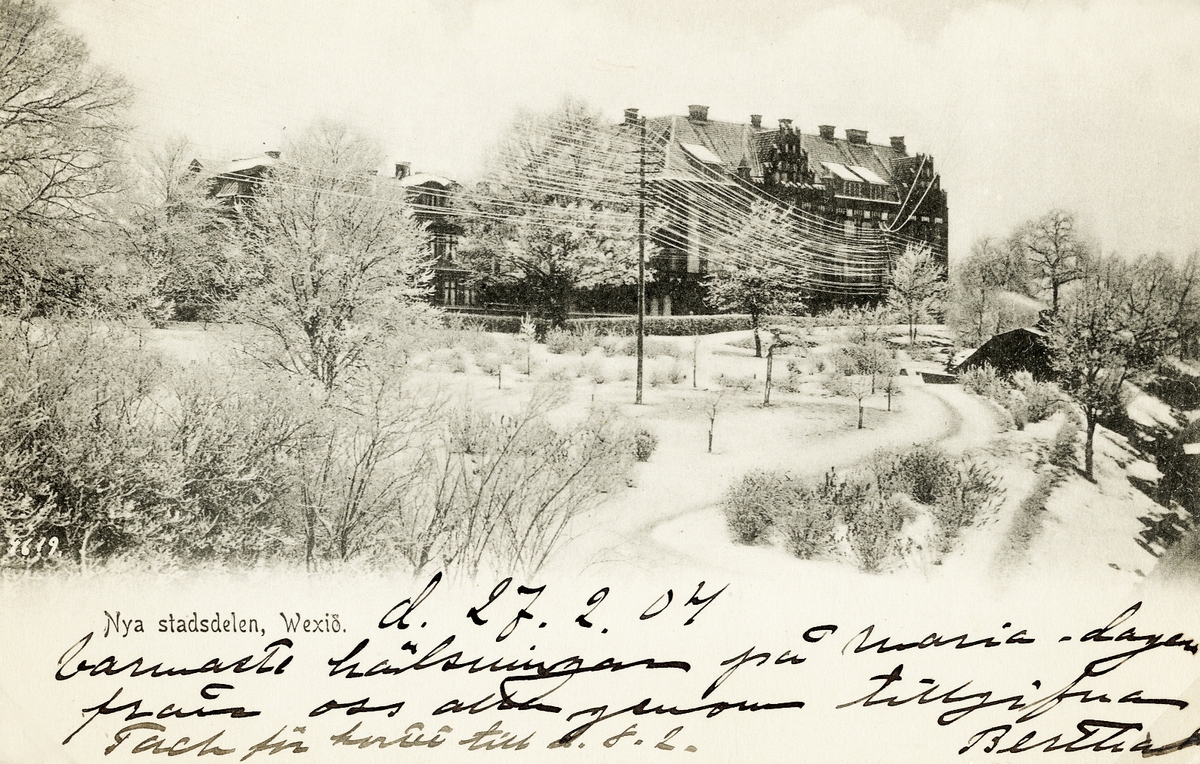 3619
Nya stadsdelen, Wexiö.
d. 27. 2. 04
Varmaste hälsningar på Maria-dagen
från oss alla genom tillgifna
Bertha
Tack för kortet till d. 8. 2.